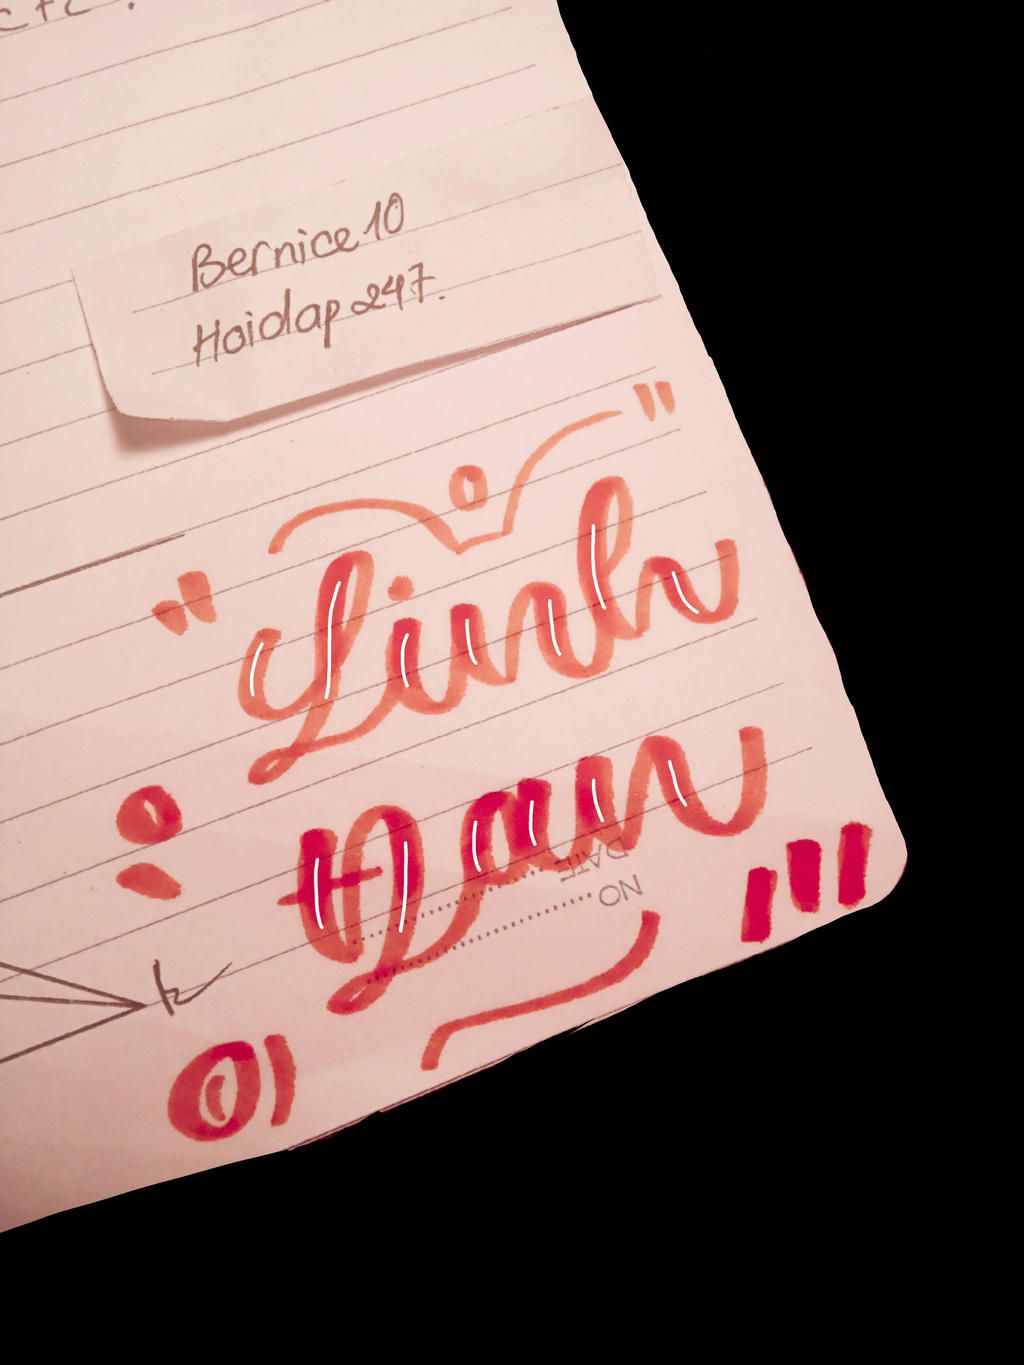 Bernice 10
Hoidap 247.
"Linh"
Đan
DATE
NO
k